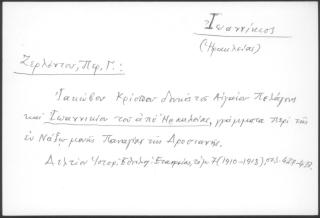 Ἰωαννίκιος
(Ἡρακλείας)
Ζερλέντου, Περ. Γ.:
Ἰακώβου Κρίσπου δουκὸς Αἰγαίου Πελάγους
καὶ Ἰωαννικίου τοῦ ἀπὸ Ἡρακλείας, γράμματα περὶ τῆς
ἐν Νάξῳ μονῆς Παναγίας τῆς Δροσιανῆς.
Δελτίον Ἱστορ. Ἐθνολ. Ἑταιρείας, τόμ. 7 (1910-1918), σελ.